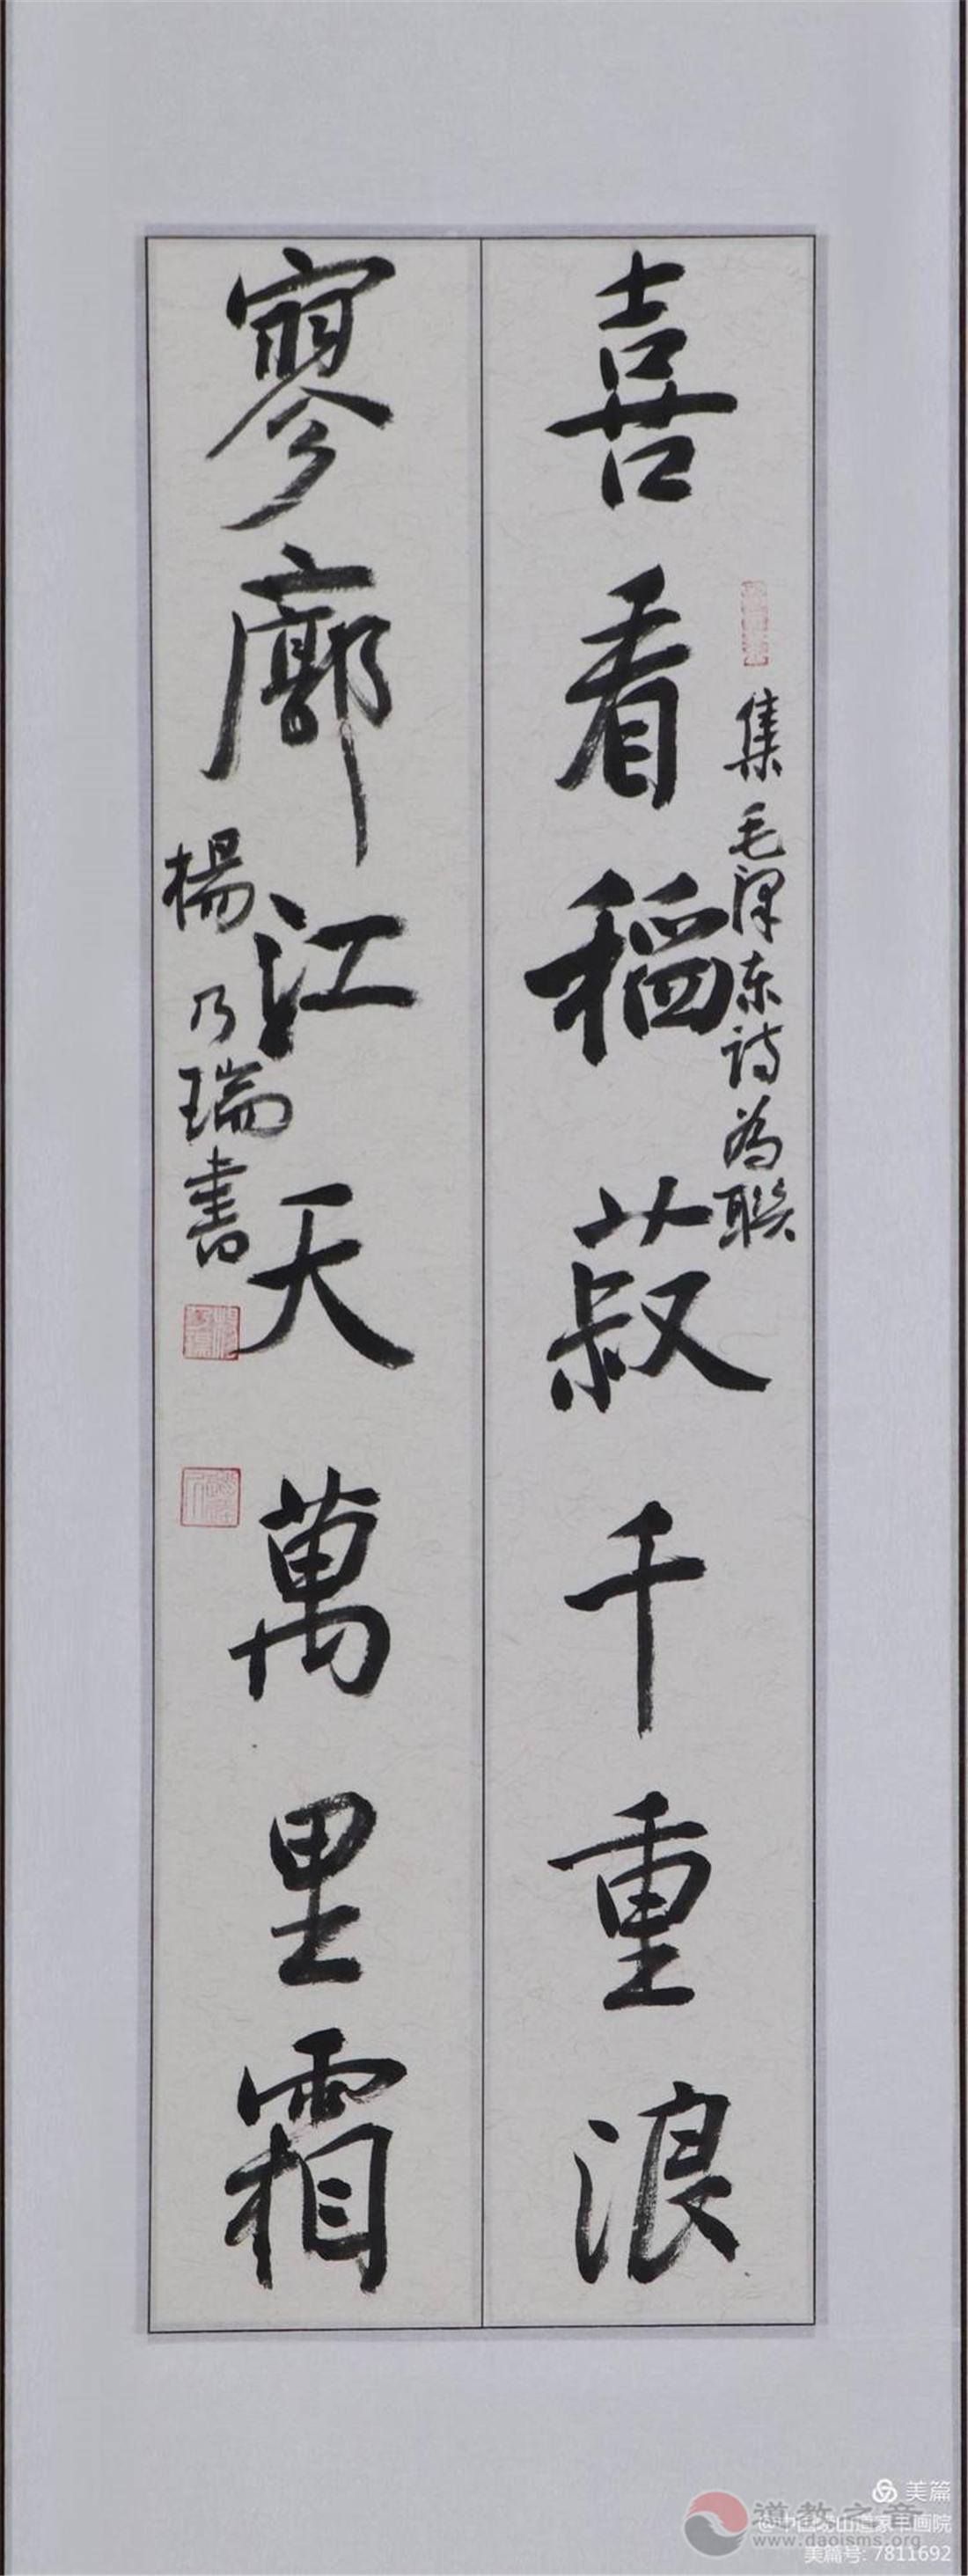 喜看稻菽千重浪
集毛泽东诗為联
寥廓江天萬里霜
楊乃瑞書
美篇
道教之音
www.daoisms.org
美篇号: 7811692